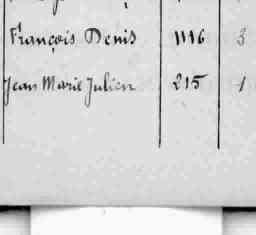 François Denis 1116 3
Jean Marie Julien 215 1